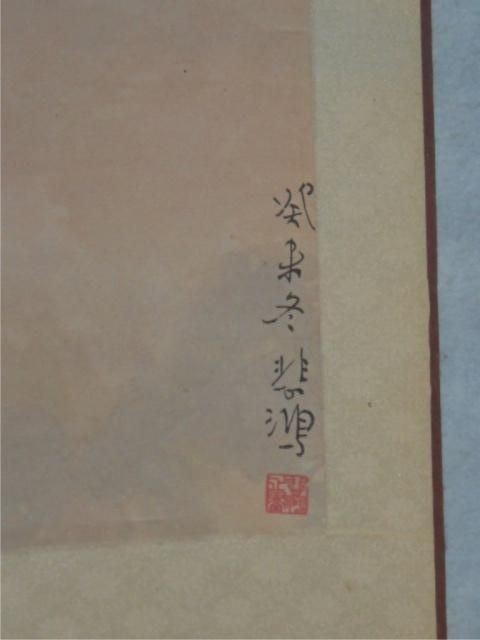 癸未冬悲鴻